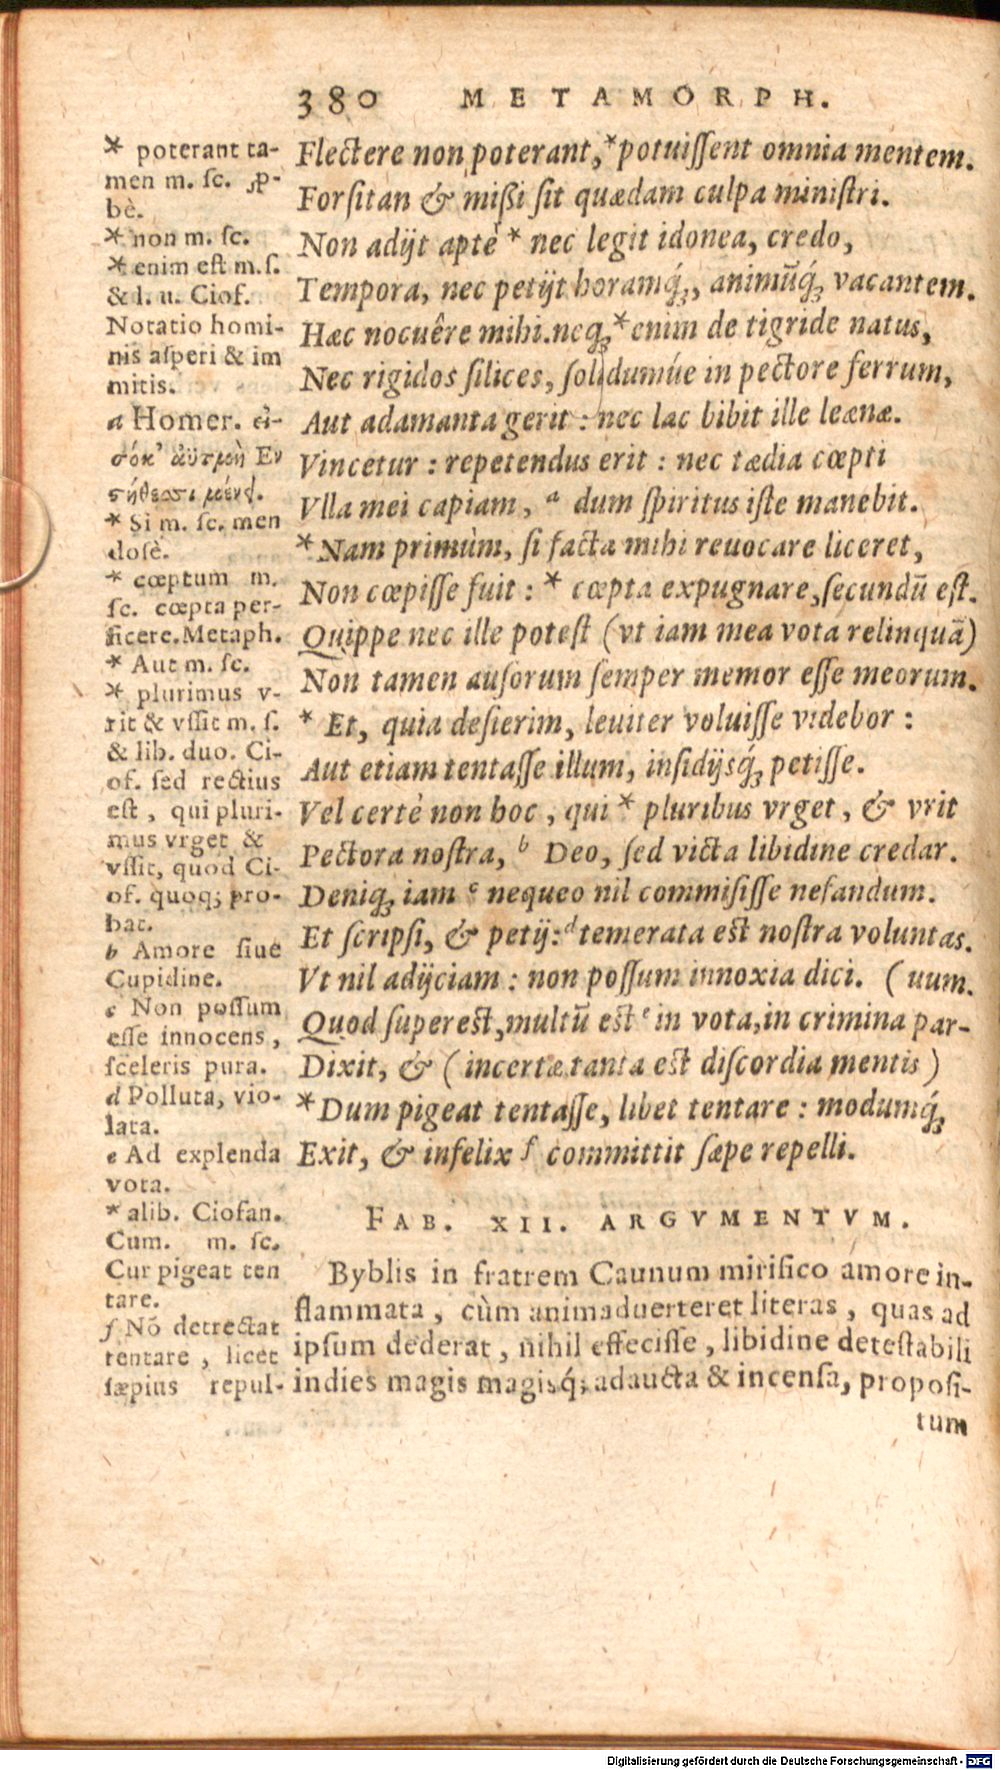 380 METAMORPH.
Flectere non poterant,*potuiſſent omnia mentem.
Forſitan & mißi ſit quædam culpa miniſtri.
Non adijt aptè * nec legit idonea, credo,
Tempora, nec petijt horamq́;, animūq́; vacantem.
Hæc nocuêre mihi.neq; *enim de tigride natus,
Nec rigidos ſilices, ſolidumúe in pectore ferrum,
Aut adamanta gerit : nec lac bibit ille leænæ.
Vincetur : repetendus erit : nec tædia cœpti
Vlla mei capiam, a dum ſpiritus iſte manebit.
*Nam primùm, ſi facta mihi reuocare liceret,
Non cœpiſſe fuit : * cœpta expugnare,ſecundū eſt.
Quippe nec ille poteſt (vt iam mea vota relinquā)
Non tamen auſorum ſemper memor eſſe meorum.
* Et, quia deſierim, leuiter voluiſſe videbor :
Aut etiam tentaſſe illum, inſidijsq́; petiſſe.
Vel certè non hoc, qui * pluribus vrget, & vrit
Pectora noſtra, b Deo, ſed victa libidine credar.
Deniq; iam c nequeo nil commiſiſſe nefandum.
Et ſcripſi, & petij: d temerata eſt noſtra voluntas.
Vt nil adijciam : non poſſum innoxia dici. (uum.
Quod ſupereſt,multū eſt e in vota,in crimina par-
Dixit, & (incertæ tanta eſt diſcordia mentis)
*Dum pigeat tentaſſe, libet tentare : modumq́;
Exit, & infelix f committit ſæpe repelli.
FAB. XII. ARGVMENTVM.
Byblis in fratrem Caunum mirifico amore in-
flammata, cùm animaduerteret literas, quas ad
ipſum dederat, nihil effeciſſe, libidine deteſtabili
indies magis magisq́; adaucta & incenſa, propoſi-
tum
* poterant ta-
men m. ſc. ꝓ-
bè.
* non m. ſc.
* enim eſt m. ſ.
& l. u. Ciof.
Notatio homi-
nis aſperi & im
mitis.
a Homer. εἰ-
σόκ' ἀϋτμὴ Εν
στήθεσσι μένῃ.
* Si m. ſc. men
dosè.
* cœptum m.
ſc. cœpta per-
ficere.Metaph.
* Aut m. ſc.
* plurimus v-
rit & vſſit m. ſ.
& lib. duo. Ci-
of. ſed rectius
eſt, qui pluri-
mus vrget &
vſſit, quod Ci-
of. quoq; pro-
bat.
b Amore ſiue
Cupidine.
c Non poſſum
eſſe innocens,
ſceleris pura.
d Polluta, vio-
lata.
e Ad explenda
vota.
* alib. Ciofan.
Cum. m. ſc.
Cur pigeat ten
tare.
f Nō detrectat
tentare, licet
ſæpius repul-
Digitalisierung gefördert durch die Deutsche Forschungsgemeinschaft - DFG